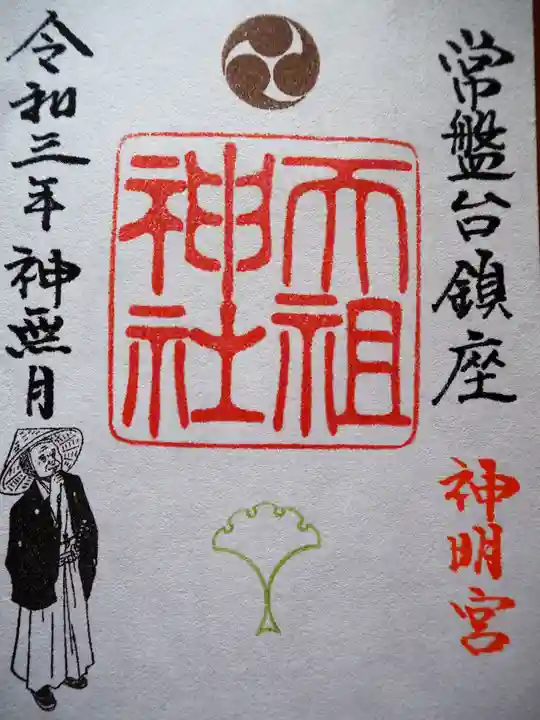 常盤台鎮座
神明宮
天祖
神社
令和三年神無月